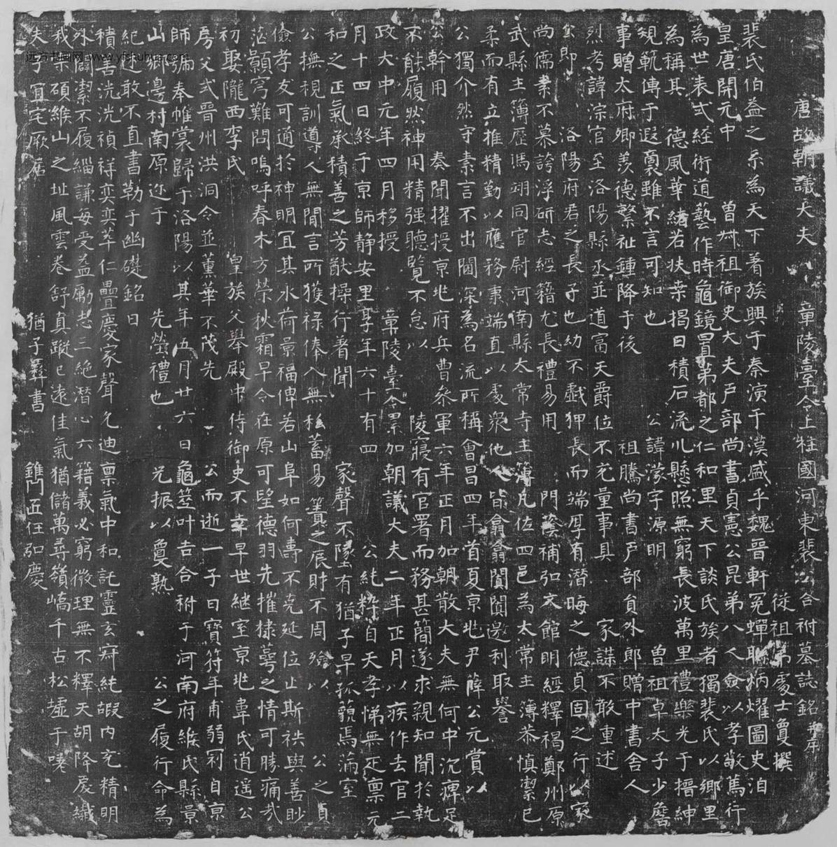 唐故朝議大夫章陵臺令上柱國河東裴公合祔墓誌銘并序
從祖弟處士夐撰
裴氏伯益之系為天下著族興于秦演于漢盛乎魏晉軒冕蟬聯炳燿圖史洎
皇唐開元中 曾叔祖御史大夫戶部尚書貞憲公昆弟八人僉以孝敬篤行
為世表式經術道藝作時龜鏡置第都之仁和里天下談氏族者獨裴氏以鄉里
為稱其 德風華緒若扶桑揭日積石流川懸照無窮長波萬里禮樂光于搢紳
規軌傳于遐裔雖不言可知也 公諱濛字源明 曾祖卓太子少詹
事贈太府卿羡德繫祉鍾降于後 祖騰尚書戶部員外郎贈中書舍人
烈考諱淙官至洛陽縣丞並道富天爵位不充量事具 家諜不敢重述
公即 洛陽府君之長子也幼不戲狎長而端厚有潛晦之德貞固之行以家
尚儒素不慕誇浮研志經籍尤長禮易用 門蔭補弘文館明經釋褐鄭州原
武縣主簿歷馮翊同官尉河南縣太常寺主簿凡位四邑為太常主簿恭慎潔己
柔而有立推精勤以應務秉端直以處眾他人皆翕翕闐闐邀利取譽
公獨介然守素言不出閫深為名流所稱會昌四年首夏京兆尹薛公元賞以
公幹用 奏聞擢授京兆府兵曹參軍六年正月加朝散大夫無何中沉痺足
不能履然神用精強聽覽不怠以 陵寢有官署而務甚簡遂求親知聞於執
政大中元年四月移授 章陵臺令累加朝議大夫二年正月以疾作去官二
月十四日終于京師靜安里享年六十有四 公純粹自天孝悌無疋稟元
和之正氣承積善之芳猷操行著聞 家聲不墜有猶子早孤藐焉滿室
公撫視訓導人無閒言所獲祿俸入無私蓄易簀之辰財不周殮以 公之貞
儉孝友可通於神明宜其水荷景福俾若山阜如何壽不克延位止斯袟與善眇
茫顥穹難問嗚呼春木方榮秋霜早令在原可望德羽先摧棣萼之情可勝痛哉
初娶隴西李氏 皇族父舉殿中侍御史不幸早世継室京兆韋氏道遙公
房父式晉州洪洞令並蕙華不茂先 公而逝一子曰寶符年甫弱冠自京
師號奉帷裳歸于洛陽以其年五月廿六日龜筮叶吉合祔于河南府緱氏縣景
山鄉邊村南原近于 先塋禮也 兄振以夐熟 公之履行命為
紀述敢不直書勒于幽礎銘曰
積善洸洸禎祥奕奕萃仁疊慶家聲允迪稟氣中和託靈玄穸純嘏內充精明
外闇潔不履緇謙每受益勵志三絕潛心六籍義必窮微理無不釋天胡降戾殲
我柔碩緱山之址風雲卷舒真蹤已遠佳氣猶儲萬尋嶺嶠千古松墟于嗟
夫子宜宅厥居 猶子彝書 鐫匠任弘慶